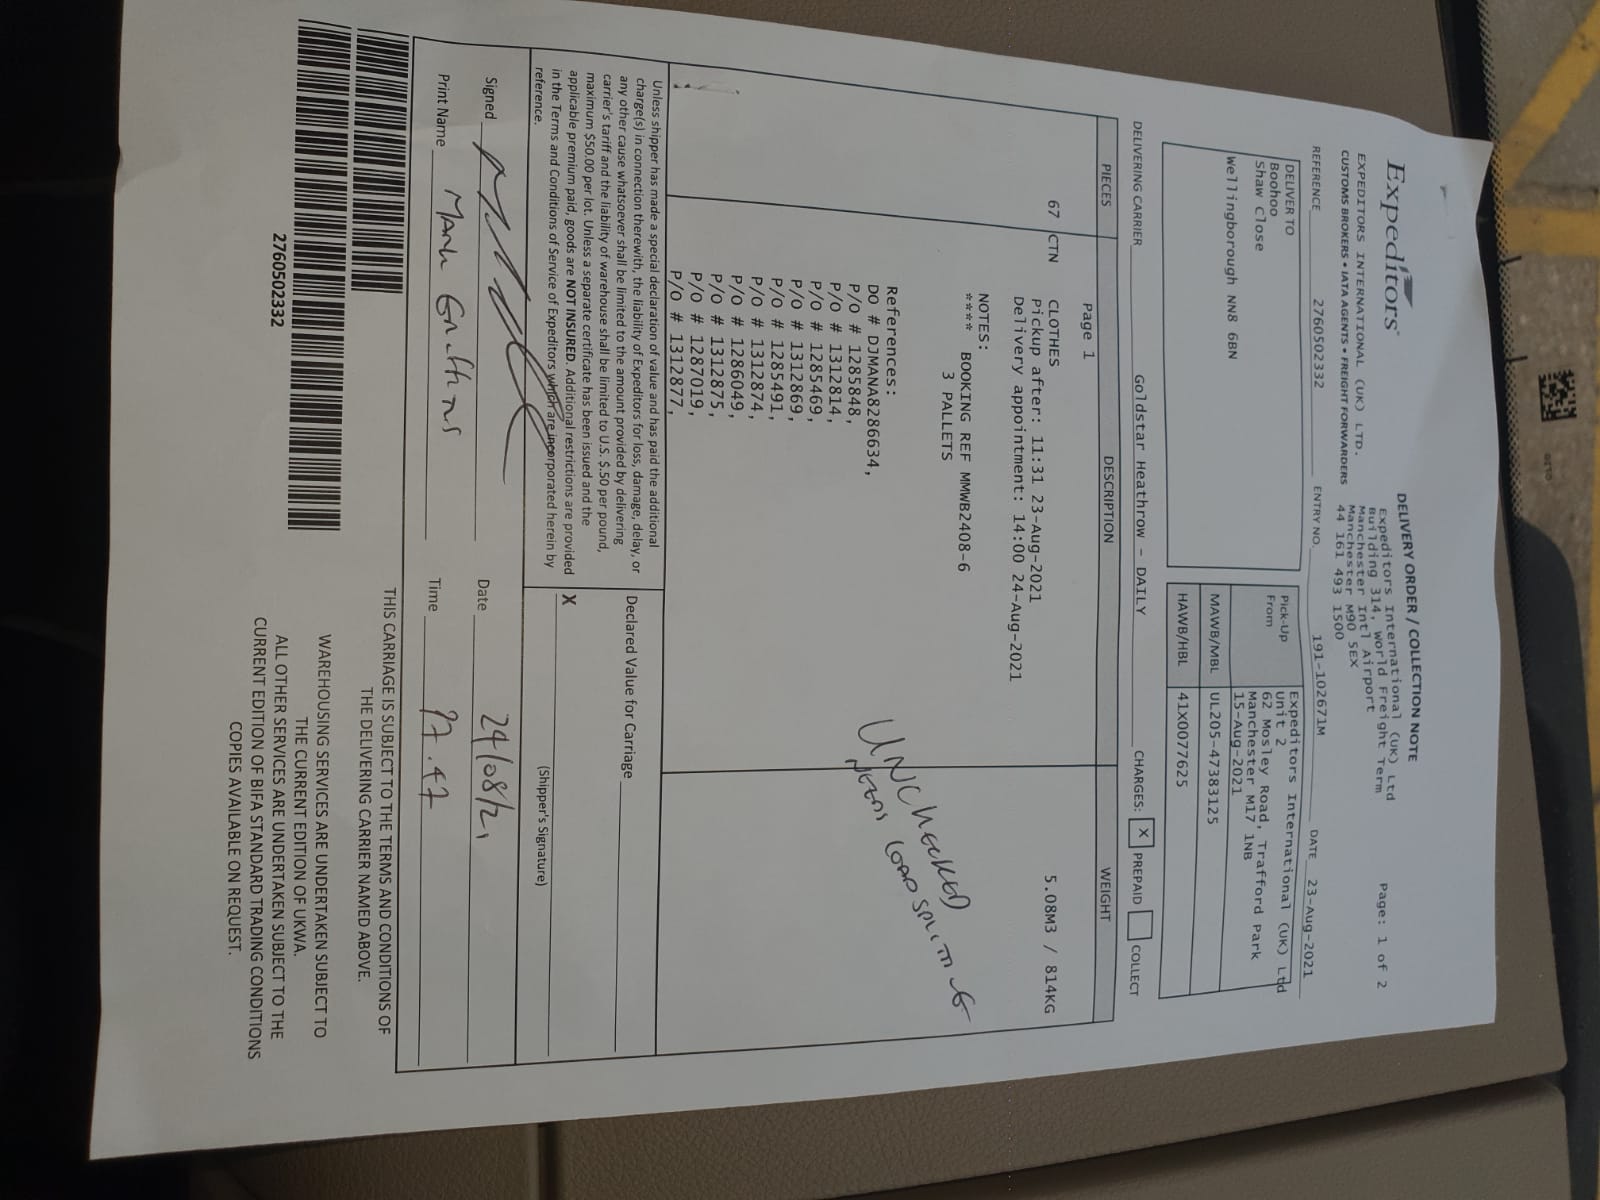 Expeditors
DELIVERY ORDER / COLLECTION NOTE
Page: 1 of 2
EXPEDITORS INTERNATIONAL (UK) LTD.
CUSTOMS BROKERS • IATA AGENTS • FREIGHT FORWARDERS
Expeditors International (UK) Ltd
Building 314, World Freight Term
Manchester Intl Airport
Manchester M90 5EX
44 161 493 1500
REFERENCE 2760502332 ENTRY NO. 191-102671M DATE 23-Aug-2021
DELIVER TO
Boohoo
Shaw Close
Wellingborough NN8 6BN
Pick-Up From
Expeditors International (UK) Ltd
Unit 2
62 Mosley Road, Trafford Park
Manchester M17 1NB
15-Aug-2021
MAWB/MBL UL205-47383125
HAWB/HBL 41X0077625
DELIVERING CARRIER Goldstar Heathrow - DAILY CHARGES: X PREPAID COLLECT
PIECES DESCRIPTION WEIGHT
Page 1
67 CTN CLOTHES 5.08M3 / 814KG
Pickup after: 11:31 23-Aug-2021
Delivery appointment: 14:00 24-Aug-2021
NOTES:
**** BOOKING REF MMWB2408-6
3 PALLETS
UNCHECKED
NEEDS LOAD SPLITTING
References:
DO # DJMANA8286634,
P/O # 1285848,
P/O # 1312814,
P/O # 1285469,
P/O # 1312869,
P/O # 1285491,
P/O # 1312874,
P/O # 1286049,
P/O # 1312875,
P/O # 1287019,
P/O # 1312877,
Unless shipper has made a special declaration of value and has paid the additional
charge(s) in connection therewith, the liability of Expeditors for loss, damage, delay, or
any other cause whatsoever shall be limited to the amount provided by delivering
carrier's tariff and the liability of warehouse shall be limited to U.S. $.50 per pound,
maximum $50.00 per lot. Unless a separate certificate has been issued and the
applicable premium paid, goods are NOT INSURED. Additional restrictions are provided
in the Terms and Conditions of Service of Expeditors which are incorporated herein by
reference.
Declared Value for Carriage
X
(Shipper's Signature)
Signed Date 24/08/21
Print Name Mark Time
THIS CARRIAGE IS SUBJECT TO THE TERMS AND CONDITIONS OF
THE DELIVERING CARRIER NAMED ABOVE.
WAREHOUSING SERVICES ARE UNDERTAKEN SUBJECT TO
THE CURRENT EDITION OF UKWA.
ALL OTHER SERVICES ARE UNDERTAKEN SUBJECT TO THE
CURRENT EDITION OF BIFA STANDARD TRADING CONDITIONS
COPIES AVAILABLE ON REQUEST.
2760502332